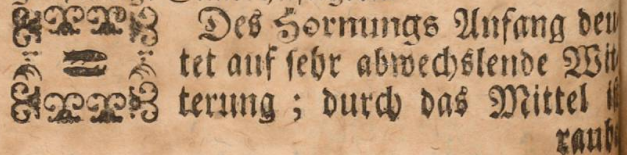 Des Hornungs Anfang deu
tet auf sehr abwechslende Wit
terung ; durch das Mittel ist
rauh